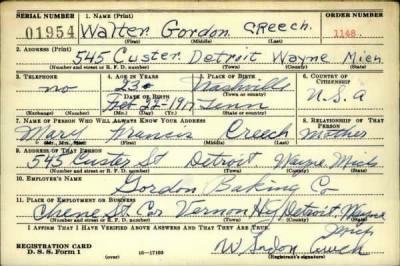 SERIAL NUMBER 1. NAME (Print) ORDER NUMBER
01954 Walter Gordon Creech 1148
(First) (Middle) (Last)
2. ADDRESS (Print)
545 Custer Detroit Wayne Mich
(Number and street or R. F. D. number) (Town) (County) (State)
3. TELEPHONE 4. AGE IN YEARS 5. PLACE OF BIRTH 6. COUNTRY OF CITIZENSHIP
no 23 Nashville U.S.A
DATE OF BIRTH (Town or county)
Feb 22-1917 Tenn
(Exchange) (Number) (Mo.) (Day) (Yr.) (State or country)
7. NAME OF PERSON WHO WILL ALWAYS KNOW YOUR ADDRESS 8. RELATIONSHIP OF THAT PERSON
Mary Francis Creech Mother
(Mr., Mrs., Miss) (First) (Middle) (Last)
9. ADDRESS OF THAT PERSON
545 Custer St Detroit Wayne Mich
(Number and street or R. F. D. number) (Town) (County) (State)
10. EMPLOYER'S NAME
Gordon Baking Co
11. PLACE OF EMPLOYMENT OR BUSINESS
Chene St Cor Vernon Hy Detroit Wayne
Mich
(Number and street or R. F. D. number) (Town) (County) (State)
I AFFIRM THAT I HAVE VERIFIED ABOVE ANSWERS AND THAT THEY ARE TRUE.
REGISTRATION CARD
D. S. S. Form 1 16-17105 W Gordon Creech
(over) (Registrant's signature)